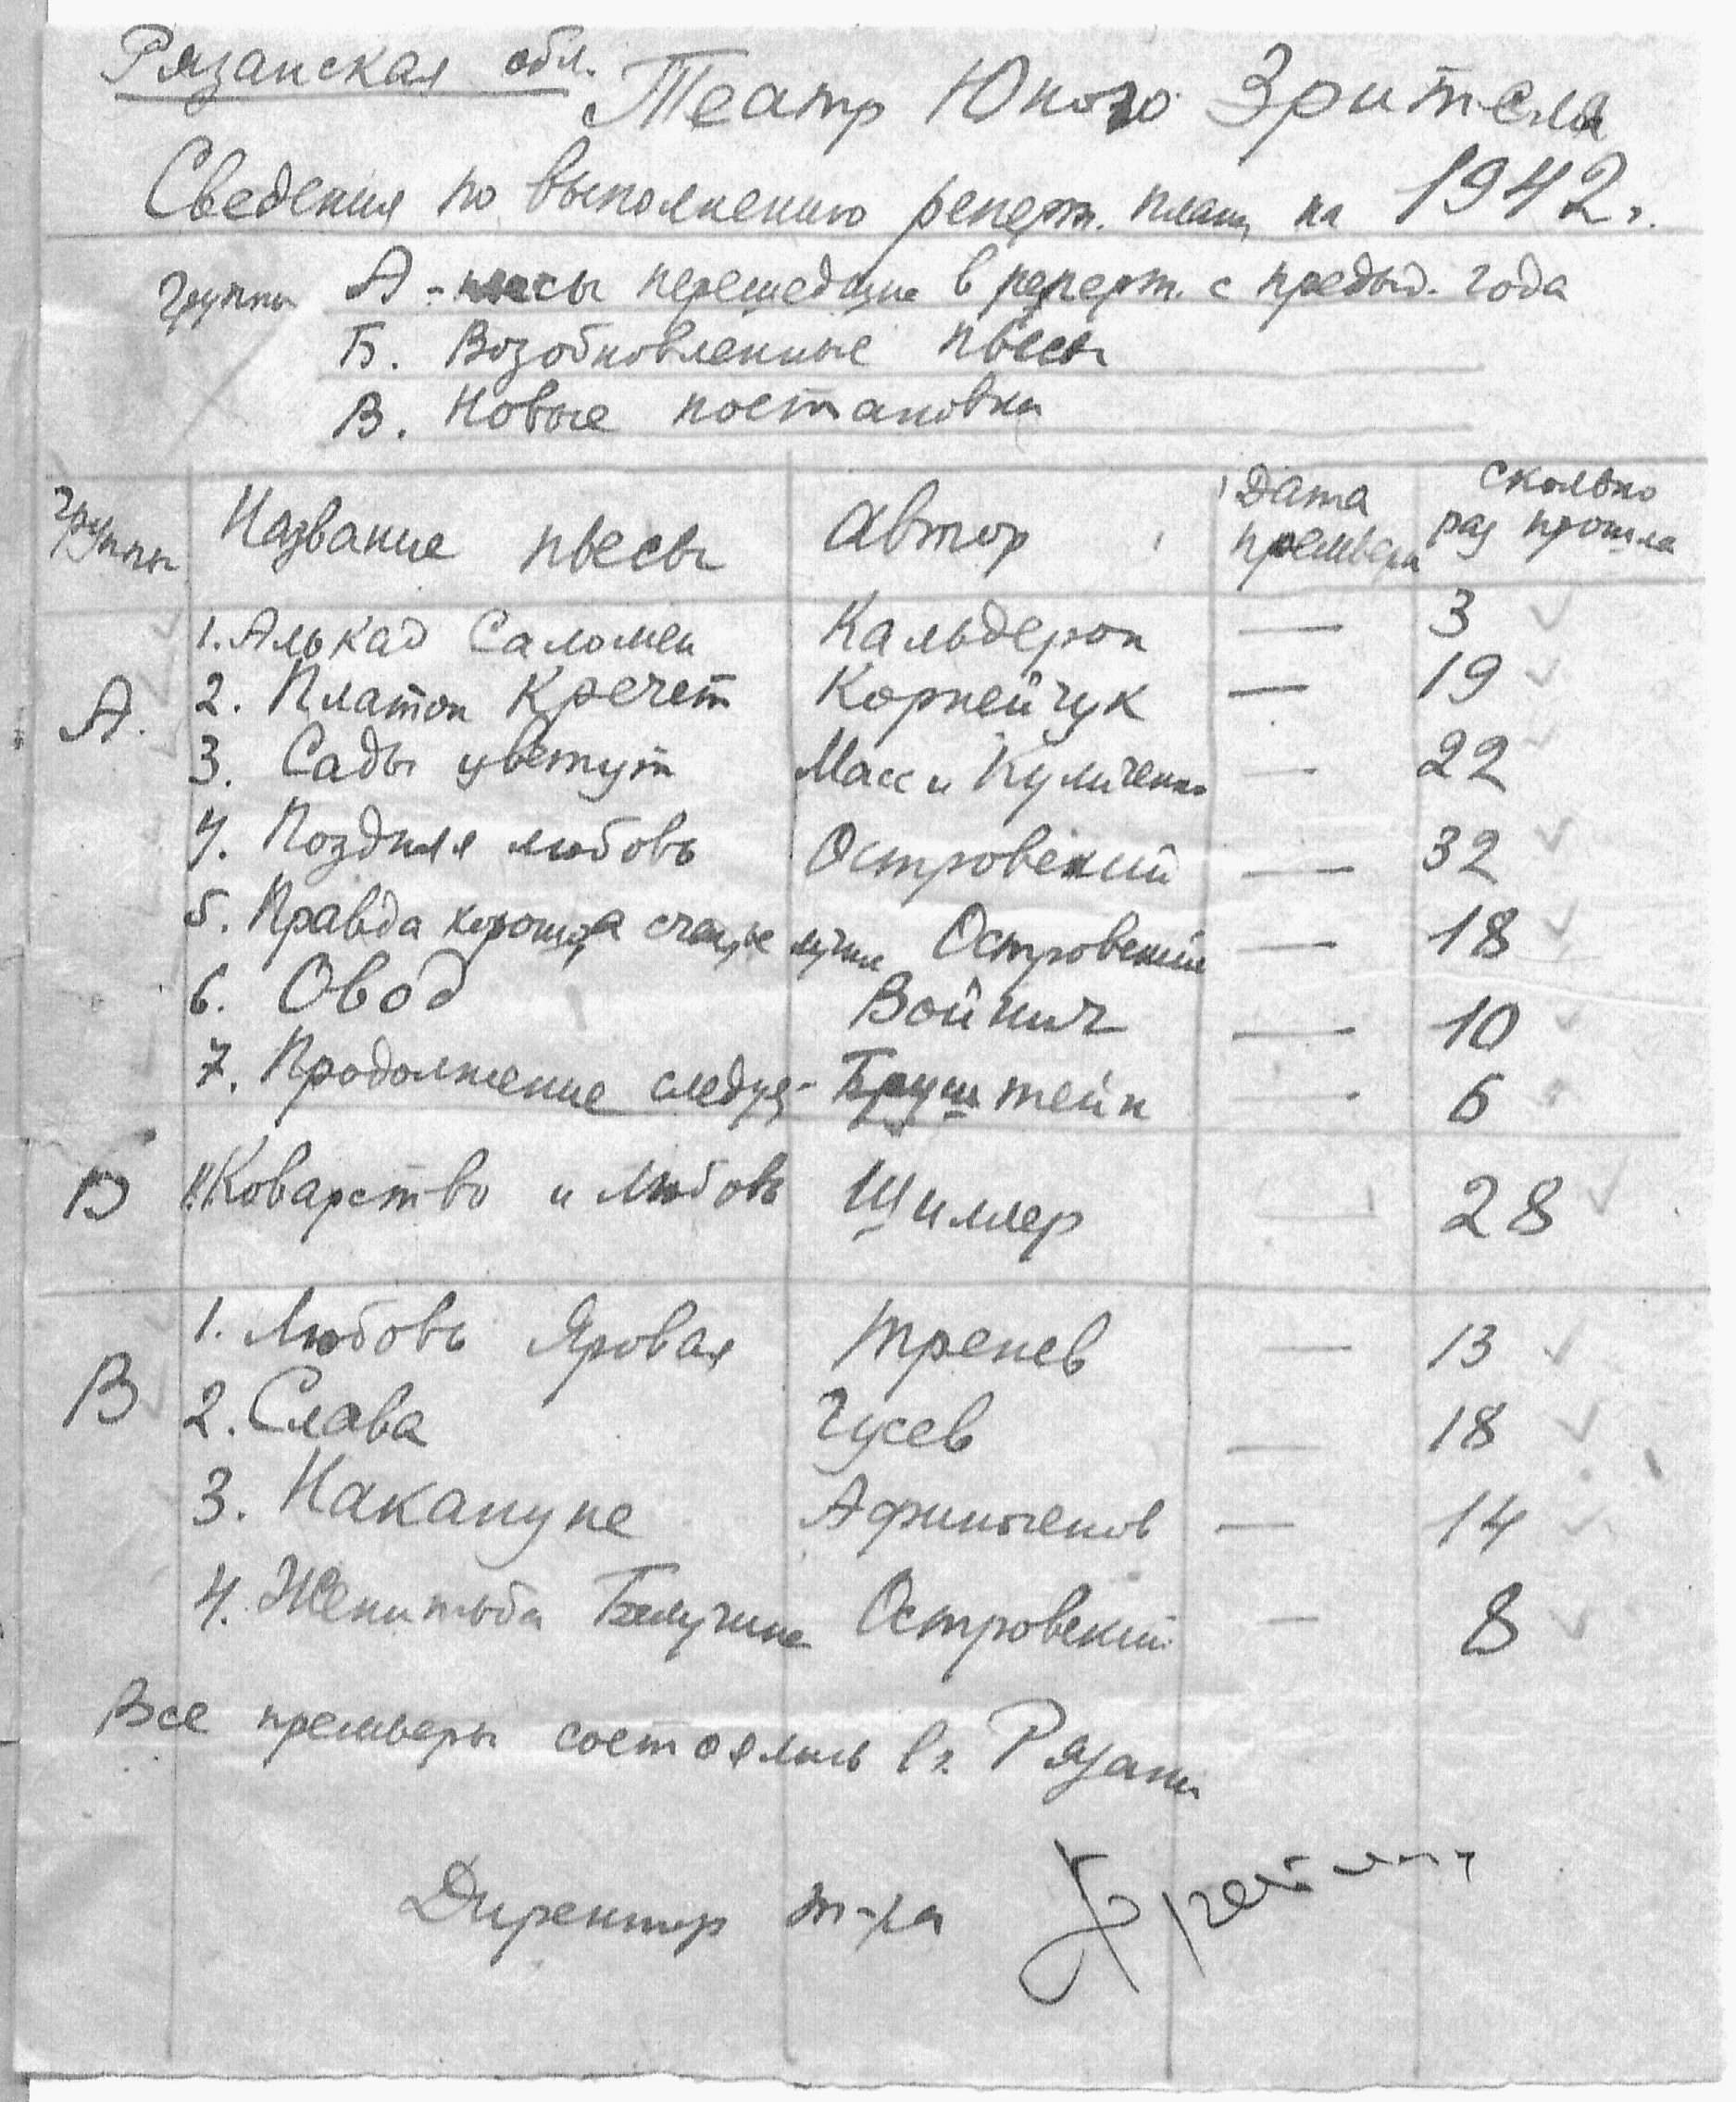 Рязанская обл. Театр Юного Зрителя
Сведения по выполнению реперт. плана на 1942 г.
Группы А - пьесы перешедшие в реперт. с предыд. года
Б. Возобновленные пьесы
В. Новые постановки
Группы Название пьесы Автор Дата премьеры Сколько раз прошла
А. 1. Алькад Саломеи Кальдерон — 3
2. Платон Кречет Корнейчук — 19
3. Сады цветут Масс и Куличенко — 22
4. Поздняя любовь Островский — 32
5. Правда хороша счастье лучше Островский — 18
6. Овод Войнич — 10
7. Продолжение следует Бруштейн — 6
Б 1. Коварство и Любовь Шиллер — 28
В 1. Любовь Яровая Тренев — 13
2. Слава Гусев — 18
3. Накануне Афиногенов — 14
4. Женитьба Белугина Островский — 8
Все премьеры состоялись в г. Рязани
Директор т-ра